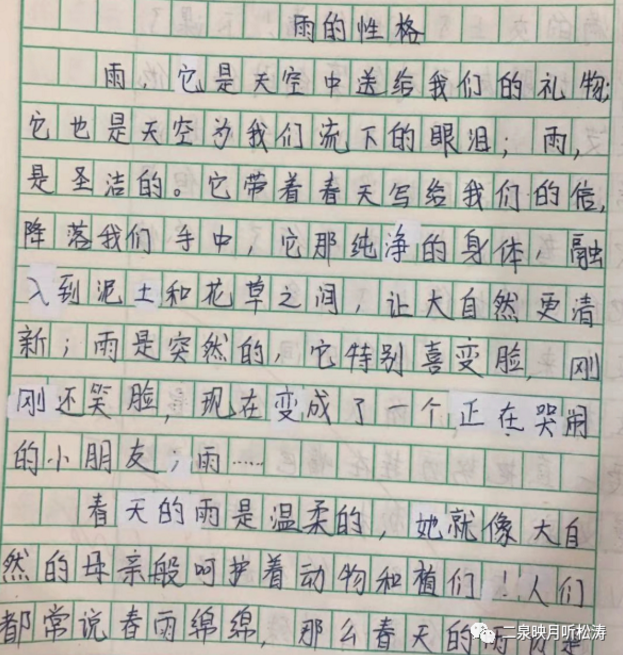 雨的性格
雨，它是天空中送给我们的礼物；
它也是天空为我们流下的眼泪；雨，
是圣洁的。它带着春天写给我们的信，
降落我们手中，它那纯净的身体，融
入到泥土和花草之间，让大自然更清
新；雨是突然的，它特别喜变脸，刚
刚还笑脸，现在变成了一个正在哭闹
的小朋友；雨……
春天的雨是温柔的，她就像大自
然的母亲般呵护着动物和植们！人们
都常说春雨绵绵，那么春天的雨
二泉映月听松涛